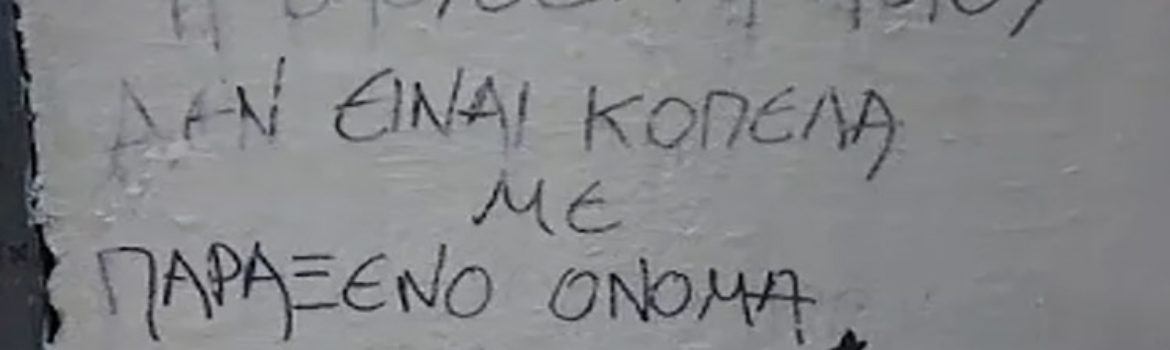 ΔΕΝ ΕΙΝΑΙ ΚΟΠΕΛΑ
ΜΕ
ΠΑΡΑΞΕΝΟ ΟΝΟΜΑ